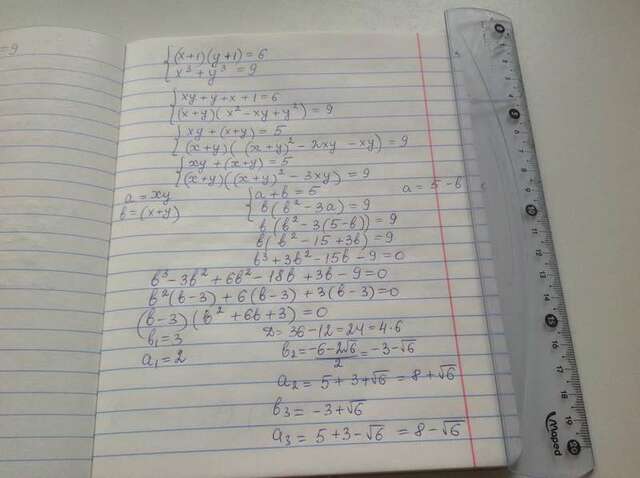 =9
{(x+1)(y+1)=6
{x³+y³=9
{xy+y+x+1=6
{(x+y)(x²-xy+y²)=9
{xy+(x+y)=5
{(x+y)((x+y)²-2xy-xy)=9
{xy+(x+y)=5
{(x+y)((x+y)²-3xy)=9
a=xy
b=(x+y)
{a+b=5
a=5-b
{b(b²-3a)=9
b(b²-3(5-b))=9
b(b²-15+3b)=9
b³+3b²-15b-9=0
b³-3b²+6b²-18b+3b-9=0
b²(b-3)+6(b-3)+3(b-3)=0
(b-3)(b²+6b+3)=0
b₁=3
D=36-12=24=4·6
a₁=2
b₂=(-6-2√6)/2=-3-√6
a₂=5+3+√6=8+√6
b₃=-3+√6
a₃=5+3-√6=8-√6
Maped